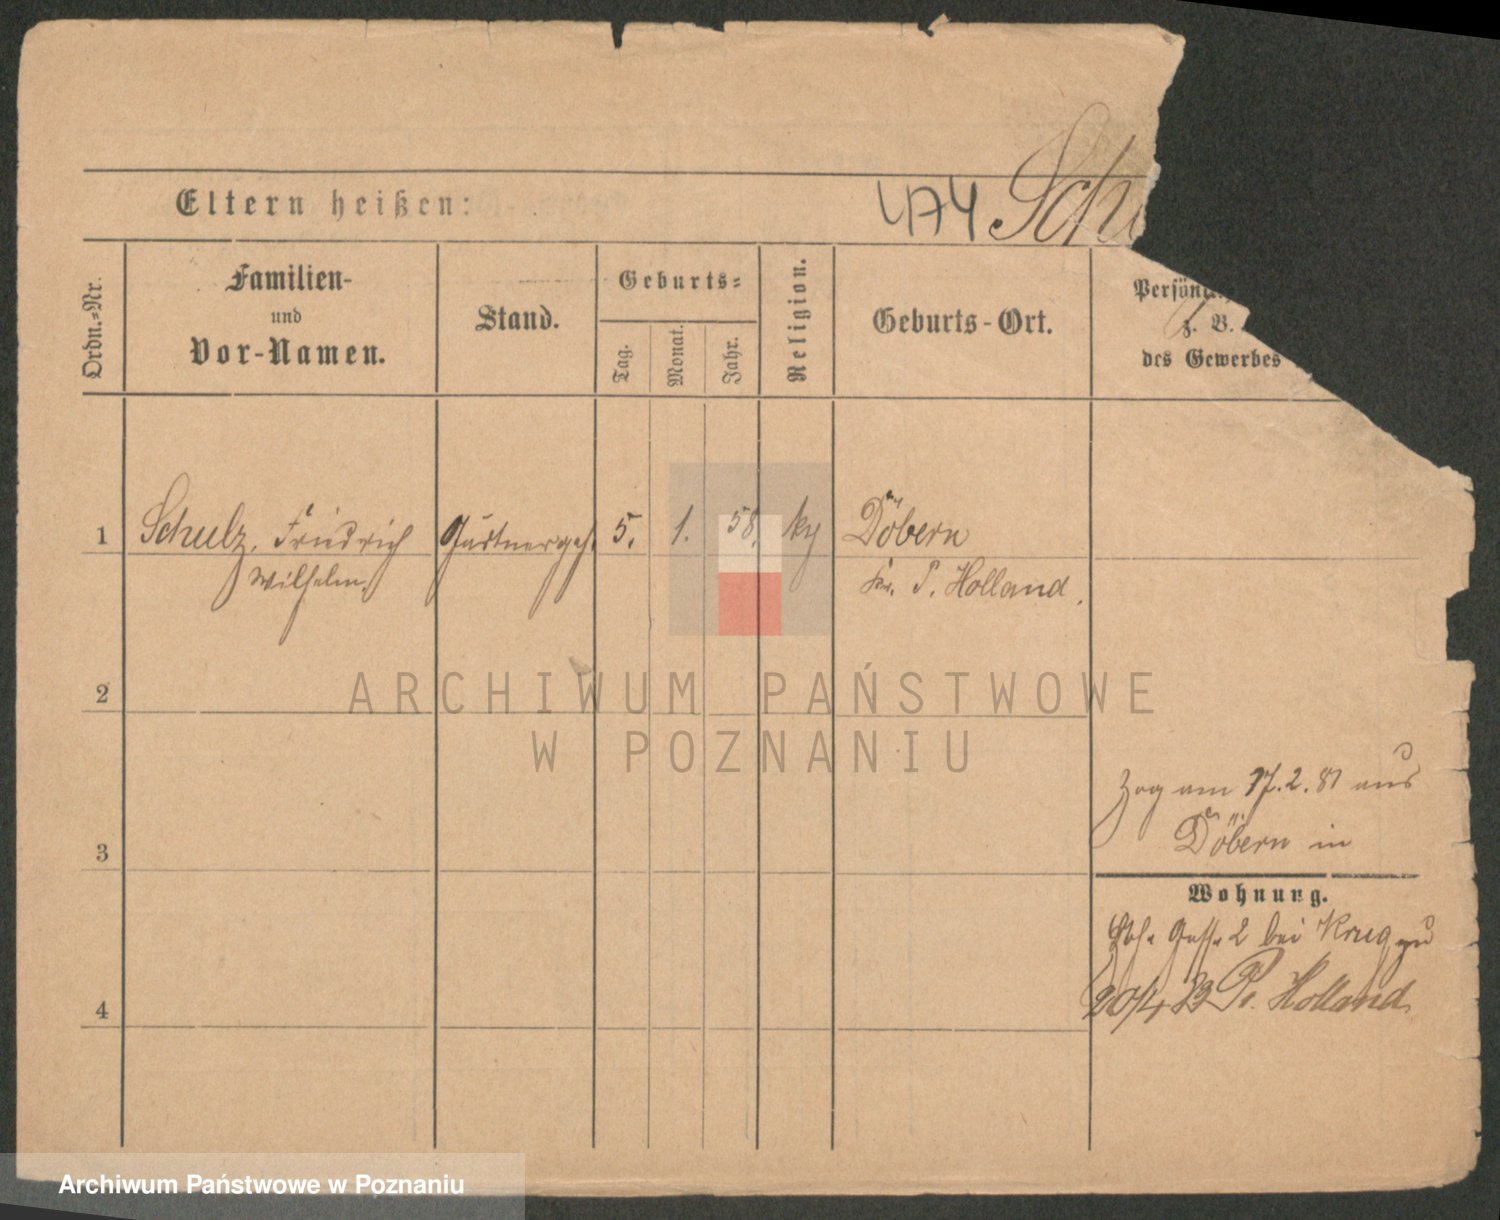 Eltern heißen:
474 Schu
Ordn.-Nr.
Familien-
und
Vor-Namen.
Stand.
Geburts-
Tag.
Monat.
Jahr.
Religion.
Geburts-Ort.
Persön
z. B.
des Gewerbes
1 Schulz, Friedrich Gärtnergeh. 5. 1. 58. Döbern
Wilhelm. Kr. P. Holland.
2
3
4
Zog am 17.2.81 aus
Döbern in
Wohnung.
2 bei Krug zu
20/4 Pr. Holland
ARCHIWUM PAŃSTWOWE
W POZNANIU
Archiwum Państwowe w Poznaniu